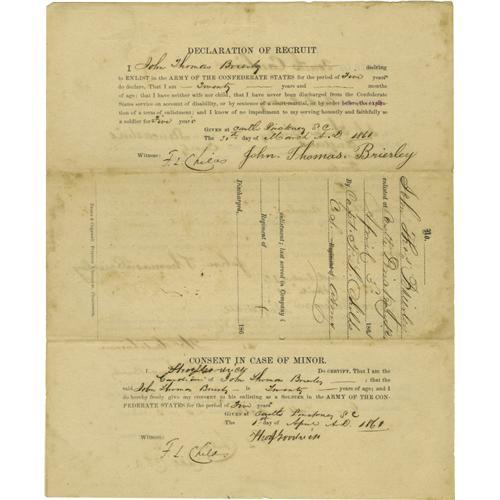 DECLARATION OF RECRUIT.
I John Thomas Brierly desiring
to ENLIST in the ARMY OF THE CONFEDERATE STATES for the period of Five years
do declare, That I am Twenty years and months
of age; that I have neither wife nor child; that I have never been discharged from the Confederate
States service on account of disability, or by sentence of a court-martial, or by order before the expira-
tion of a term of enlistment; and I know of no impediment to my serving honestly and faithfully as
a soldier for Five years.
GIVEN at Castle Pinckney S. C.
The 30th day of March A.D. 1861
Witness: F L Childs John. Thomas. Brierley
No.
John Thos Brierly
enlisted at Castle Pinckney
April 1st 186
By Capt. F. L. Childs
Regiment of
enlistment; last served in Company (
) Regiment of
Discharged, 186
CONSENT IN CASE OF MINOR.
I, Do CERTIFY, That I am the
Guardian of John Thomas Brierly ; that the
said John Thomas Brierly is Twenty years of age; and I
do hereby freely give my CONSENT to his enlisting as a SOLDIER in the ARMY OF THE CON-
FEDERATE STATES for the period of Five years
GIVEN at Castle Pinckney S. C
The 1st day of April A.D. 1861
Witness:
F L Childs